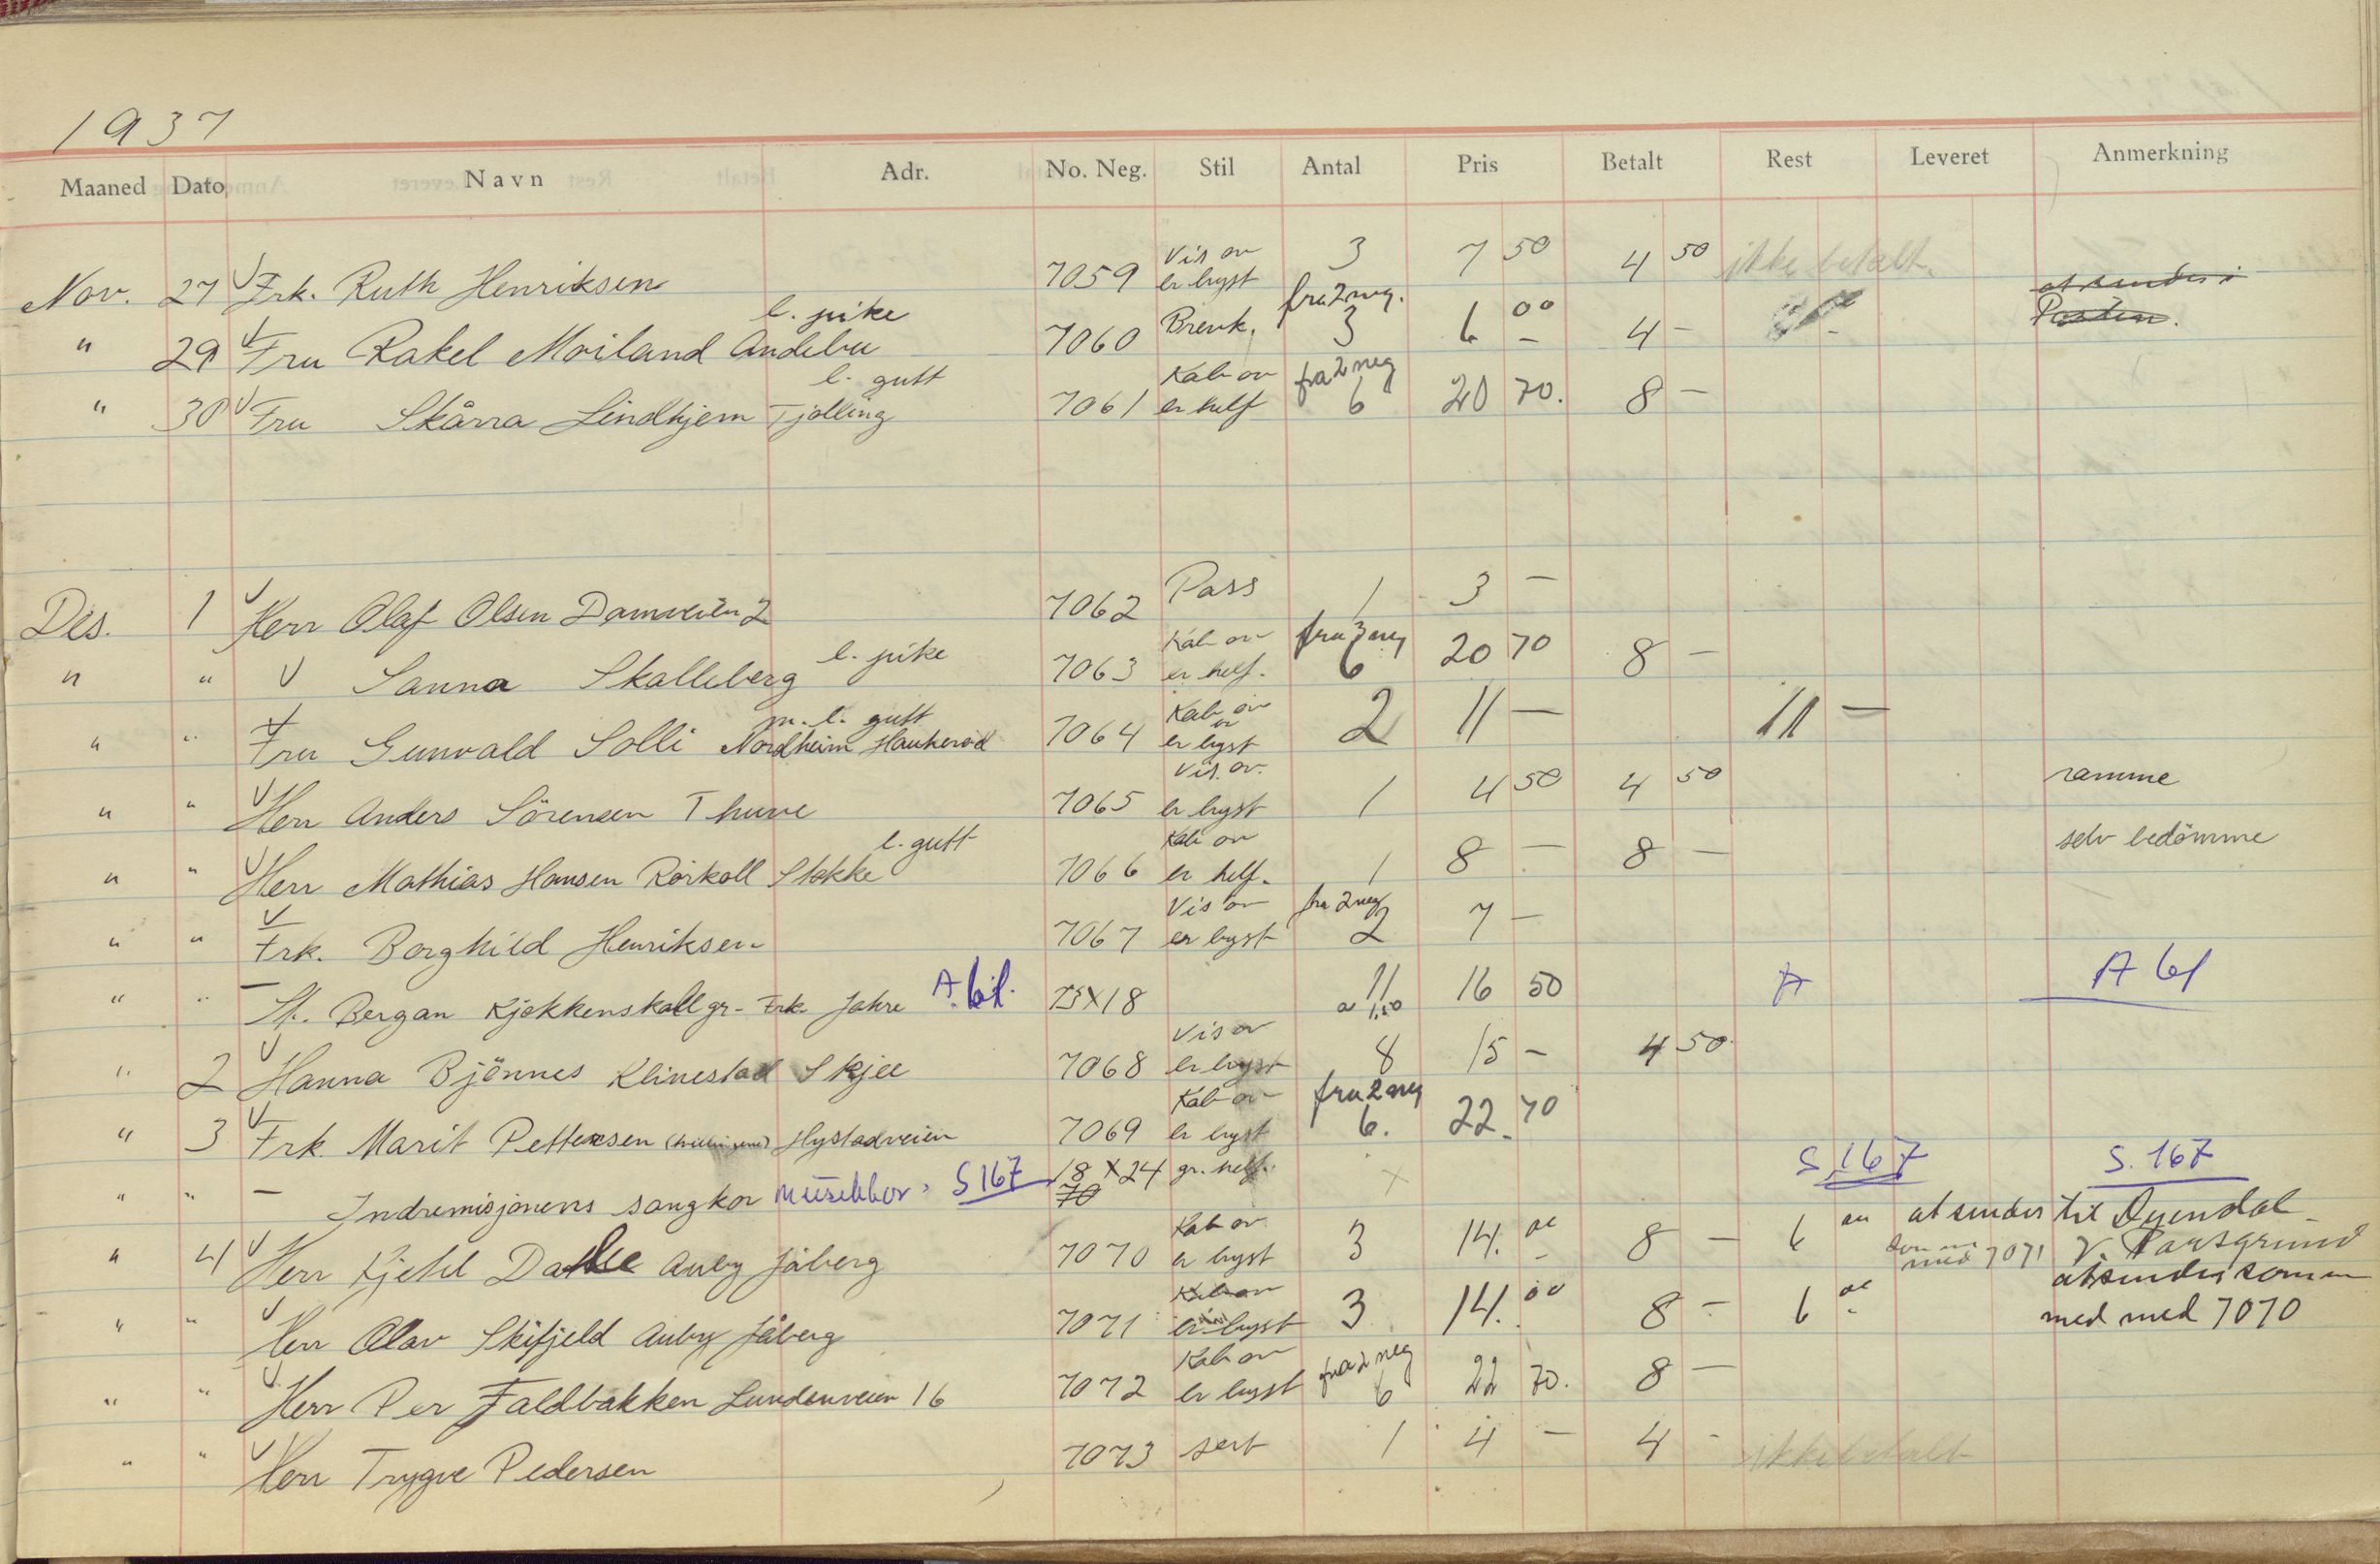 1937
Maaned Dato Navn Adr. No. Neg. Stil Antal Pris Betalt Rest Leveret Anmerkning
Vis av 3 7 50 4 50 ikke betalt.
Nov. 27 V Frk. Ruth Henriksen 7059 en byst fra 2 neg. at sendes i
l. pike Posten.
" 29 V Fru Rakel Moiland Andebu 7060 Brevk. 3 6 00 – 4 –
l. gutt Kab av fra 2 neg
" 30 V Fru Skårra Lindhjem Tjølling 7061 en helf 6 20 70. 8 –
Des. 1 V Herr Olaf Olsen Damveien 2 7062 Pass 1 3 –
l. pike Kab av fra 3 neg
" " V Sanna Skalleberg 7063 en helf. 6 20 70 8 –
m. l. gutt Kab av
" " V Fru Gunvald Solli Nordheim Haukerød 7064 en byst 2 11 – 11 –
Vis. av.
" " V Herr Anders Sörensen Thuve 7065 en byst 1 4 50 4 50 ramme
l. gutt Kab av selv bedömme
" " V Herr Mathias Hansen Rörkoll Stokke 7066 en helf. 1 8 – 8 –
Vis av fra 2 neg
" " V Frk. Borghild Henriksen 7067 en byst 2 7 –
" " – St. Bergan Kjökkenskoll gr. Frk. Jahre A. 61. 13X18 11 a 1,50 16 50 A A 61
Vis av
" 2 V Hanna Bjönnes Klinestad Skjee 7068 en byst 8 15 – 4 50
Kab av fra 2 neg
" 3 V Frk. Marit Pettersen Hystadveien 7069 en byst 6. 22. 70
" " – Indremisjonens sangkor Musikkor S 167 18 X 24 gr. helf. X S 167 S. 167
70
Kab av at sendes til Ayendal
" 4 V Herr Kjetil Dalle Auby Jåberg 7070 en byst 3 14. 00 8 – 6 00 med 7071 V. Porsgrund
Kab av at sendes sammen
" " V Herr Olav Skifjeld Auby Jåberg 7071 en byst 3 14. 00 8 – 6 00 med med 7070
Kab av fra 2 neg
" " V Herr Per Faldbakken Lundenveien 16 7072 en byst 6 22 70. 8 –
" " V Herr Trygve Pedersen 7073 sert 1 4 – 4 - ikke betalt